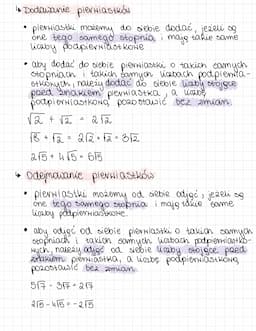 ↳ Dodawanie pierwiastków
• pierwiastki możemy do siebie dodać, jeżeli są
one tego samego stopnia i mają takie same
liczby podpierwiastkowe
• aby dodać do siebie pierwiastki o takich samych
stopniach i takich samych liczbach podpierwia-
stkowych, należy dodać do siebie liczby stojące
przed znakiem pierwiastka, a liczbę
podpierwiastkową pozostawić bez zmian.
√2 + √2 = 2√2
√8 + √2 = 2√2 + √2 = 3√2
2√5 + 4√5 = 6√5
↳ Odejmowanie pierwiastków
• pierwiastki możemy od siebie odjąć, jeżeli są
one tego samego stopnia i mają takie same
liczby podpierwiastkowe.
• aby odjąć od siebie pierwiastki o takich samych
stopniach i takich samych liczbach podpierwiastko-
wych, należy odjąć od siebie liczby stojące przed
znakiem pierwiastka, a liczbę podpierwiastkową
pozostawić bez zmian.
5√7 - 3√7 = 2√7
2√5 - 4√5 = -2√5